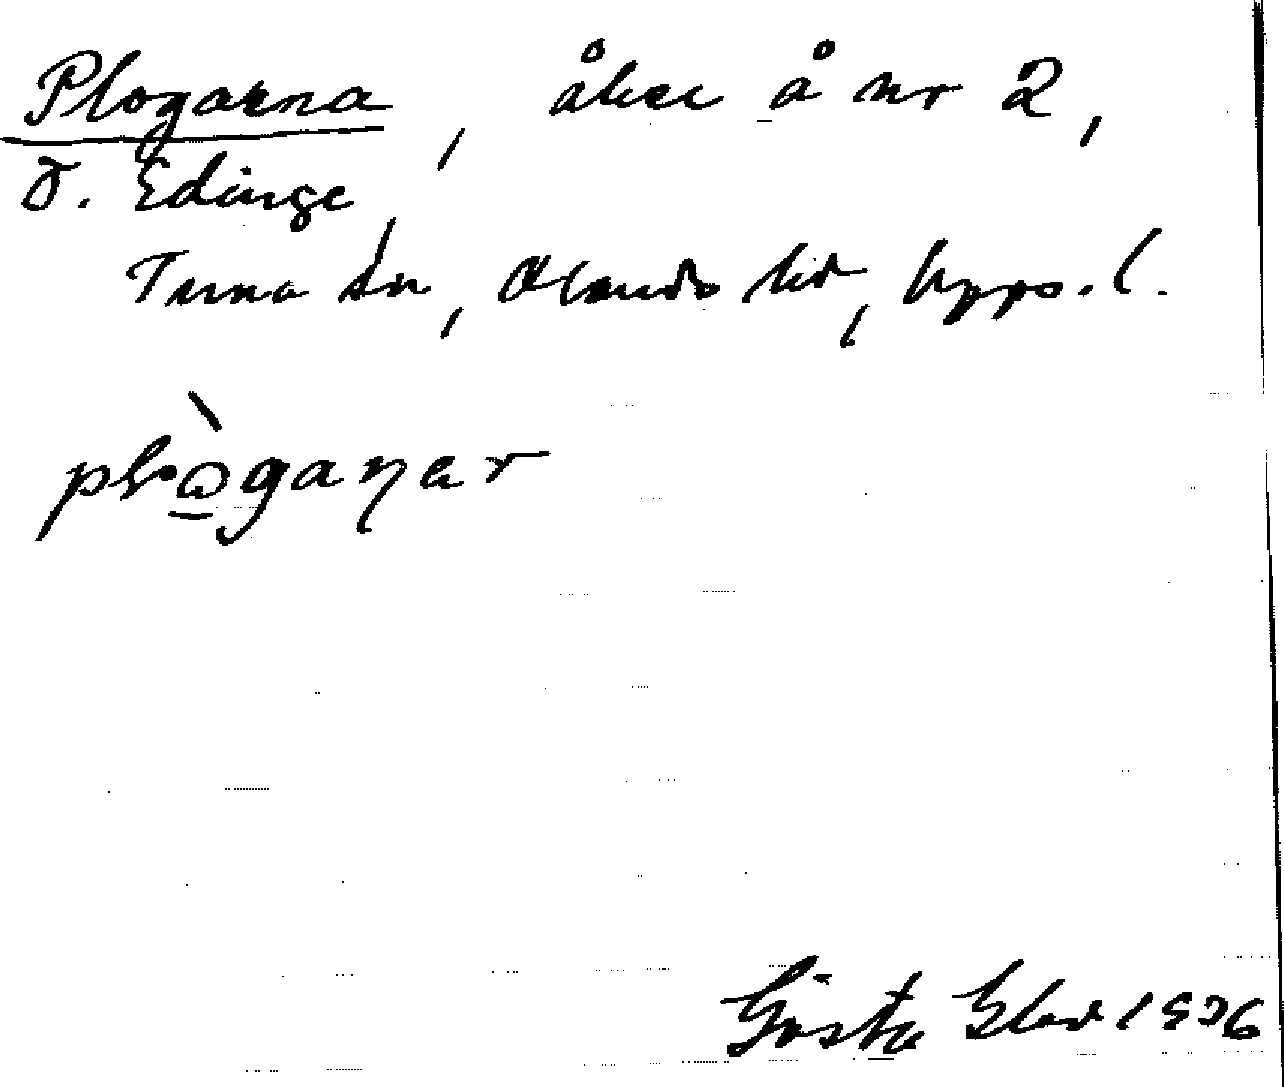 Plogarna, åker å nr 2,
Ö. Edinge,
Tuna sn, Olands hd, Upps. l.
plògaṇar
Gösta 1936